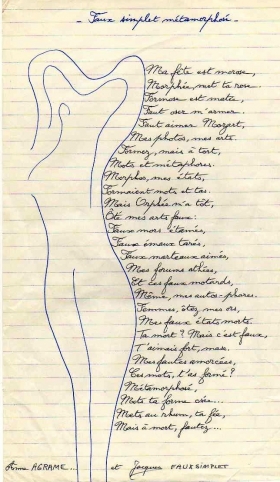 - Faux simplet métamorphosé -
Ma fête est morose,
Morphée, met ta rose.
Formose est motte,
Faut oser m'armer.
Faut aimer Mozart,
Mes photos, mes arts
Formez, mais à tort,
Mots et métaphores.
Morphos, mes états,
Formaient mots et tas.
Mais Orphée n'a tôt,
Ôté mes arts faux.
Faux mors étamés,
Faux émaux tarés,
Faux marteaux aimés,
Mes forums athées,
Et ces faux motards,
Même, mes autos-phares.
Femmes, ôtez, mes ors,
Mes faux états morts.
Ta mort ? Mais c'est faux,
T'aimais fort, mais.
Mes fautes amorcées,
Ces mots, t'as formé ?
Métamorphosé,
Mots ta forme osée...
Mets au rhum, ta fée,
Mais à mort, fautez...
Anne AGRAME... et Jacques FAUXSIMPLET